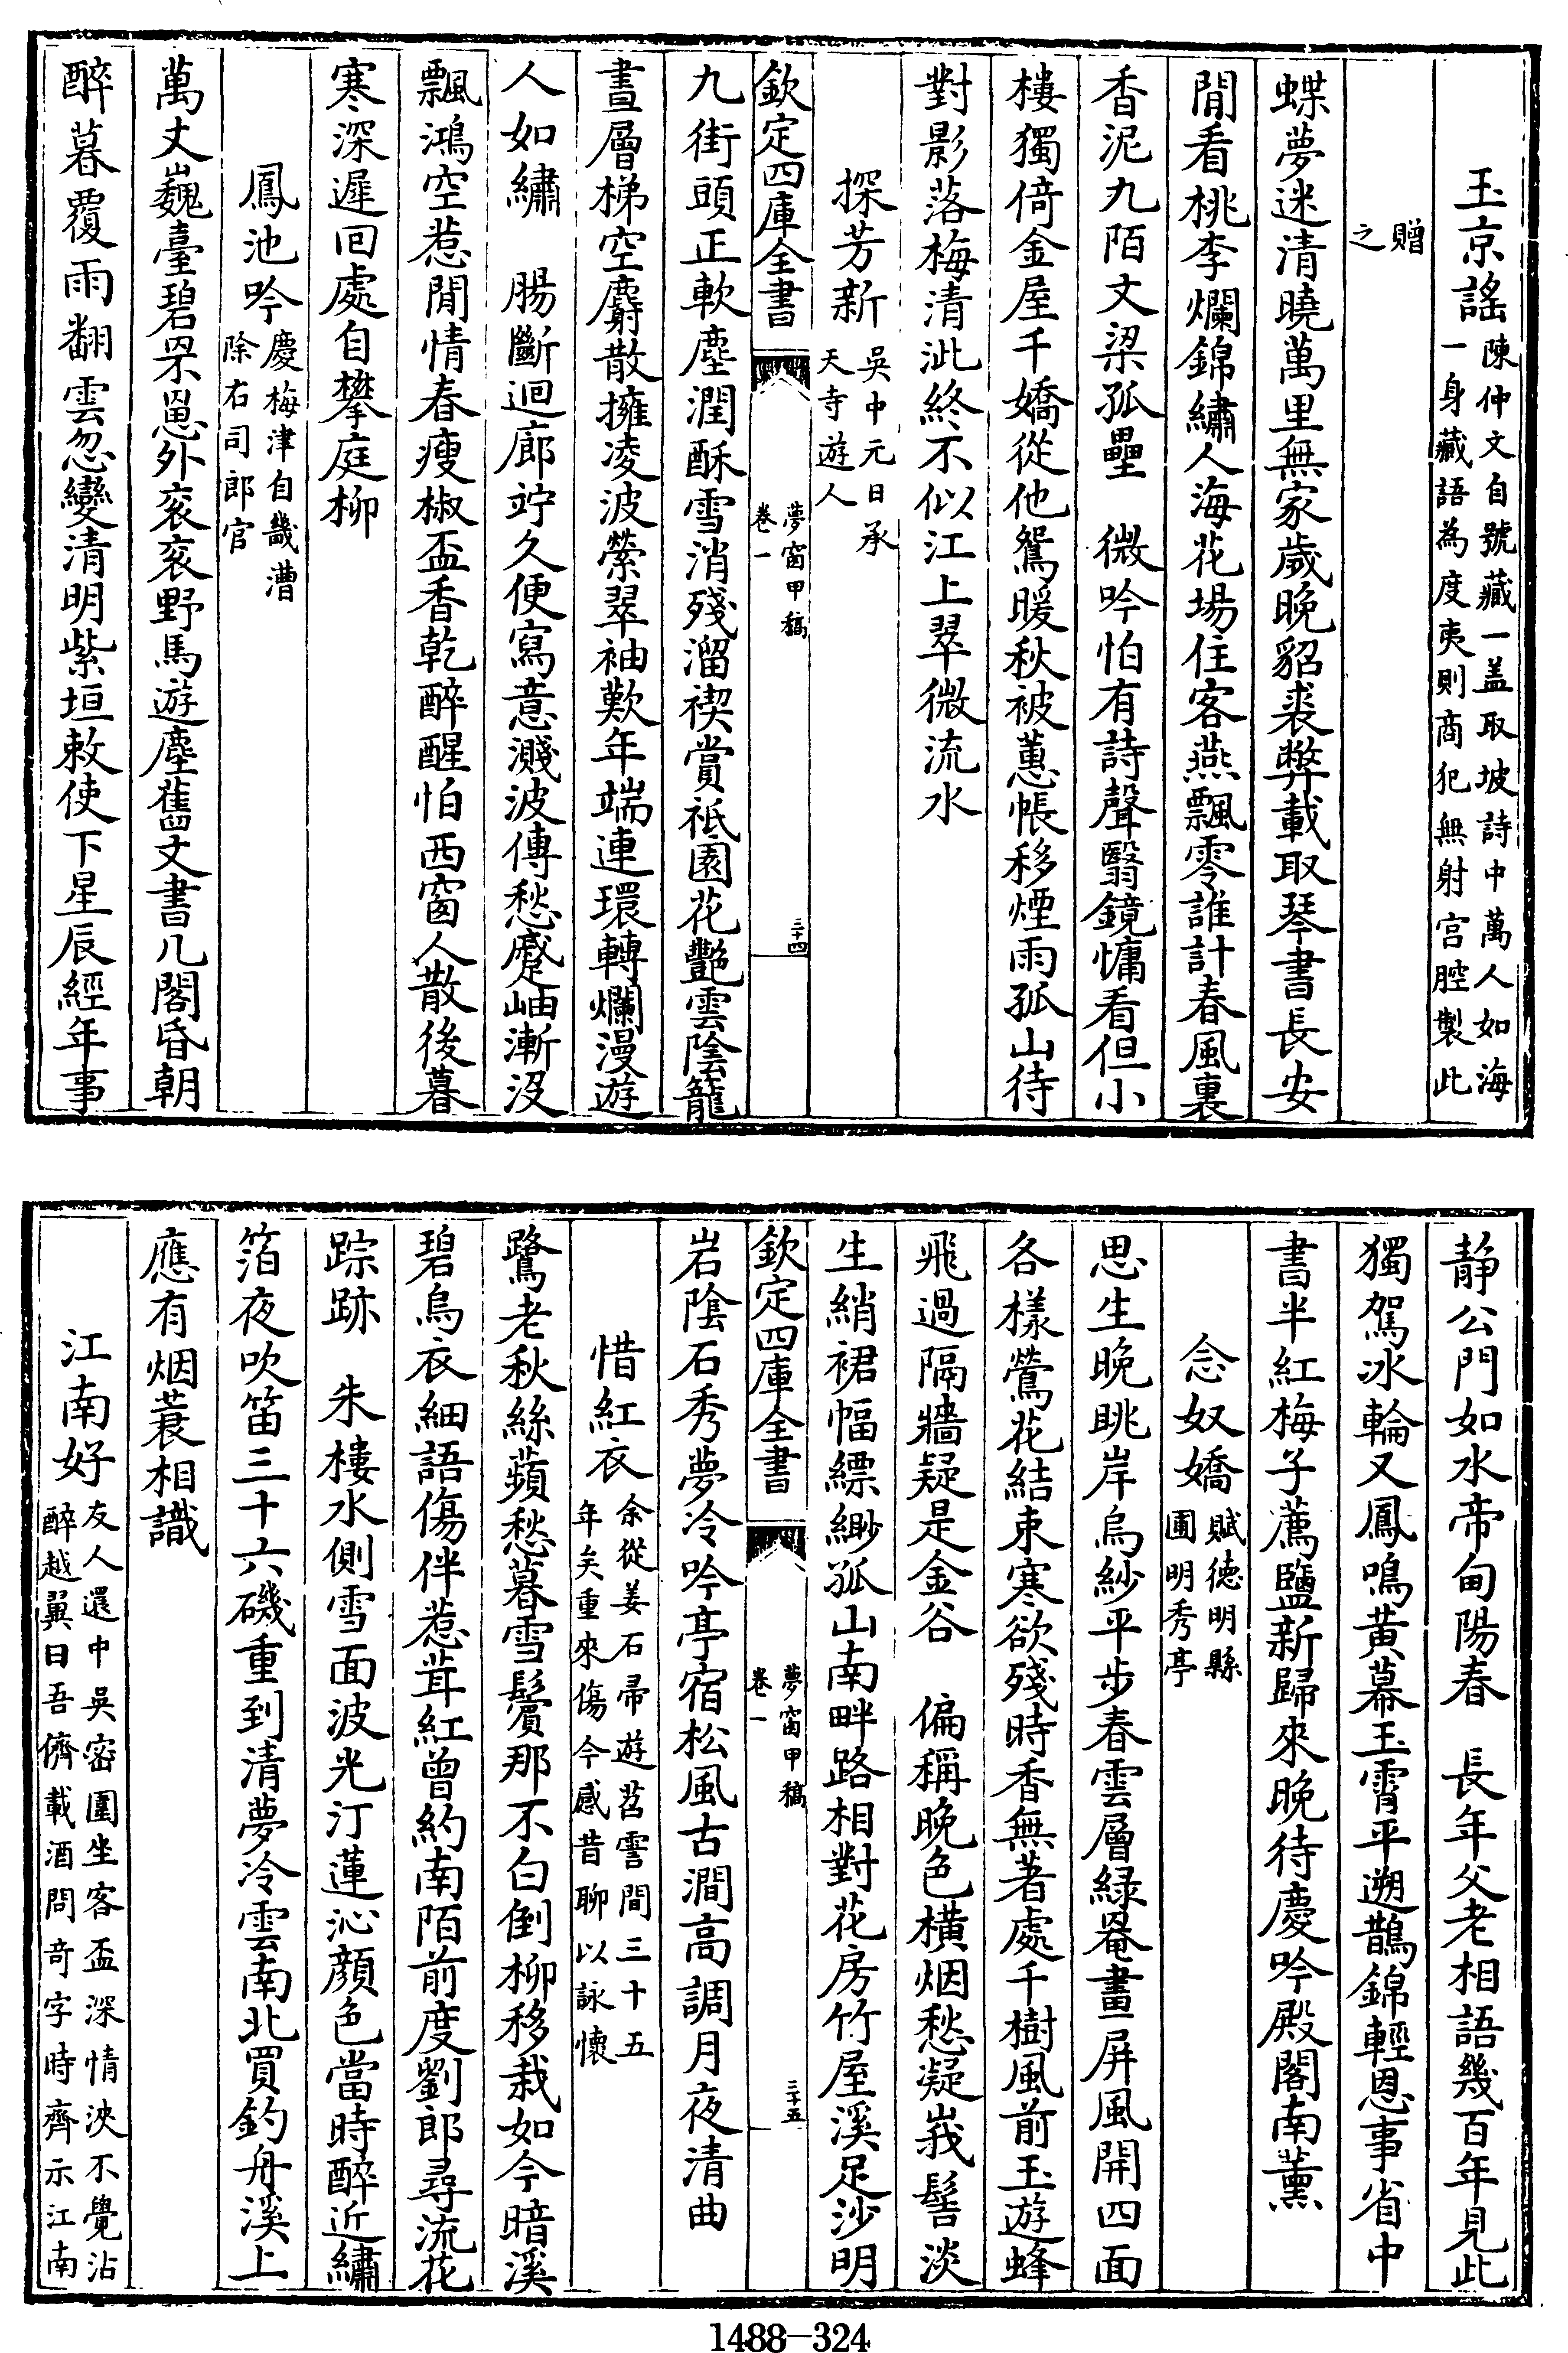 玉京謠陳仲文自號藏一盖取坡詩中萬人如海
一身藏語為度夷則商犯無射宫腔製此
贈
之
蝶夢迷清曉萬里無家歲晚貂裘弊載取琴書長安
閒看桃李爛錦繡人海花場任客燕飄零誰計春風裏
香泥九陌文梁孤壘　微吟怕有詩聲翳鏡慵看但小
樓獨倚金屋千嬌從他鴛暖秋被蕙帳移煙雨孤山待
對影落梅清泚終不似江上翠微流水
探芳新吳中元日承
天寺遊人
欽定四庫全書
夢窗甲稿
卷一
二十四
九街頭正軟塵潤酥雪消殘溜禊賞祇園花艷雲陰籠
晝層梯空麝散擁凌波縈翠袖歎年端連環轉爛漫遊
人如繡　腸斷迴廊竚久便寫意濺波傳愁蹙岫漸沒
飄鴻空惹閒情春瘦椒盃香乾醉醒怕西窗人散後暮
寒深遲囘處自攀庭柳
鳳池吟慶梅津自畿漕
除右司郎官
萬丈巍臺碧罘罳外衮衮野馬遊塵舊文書几閣昏朝
醉暮覆雨翻雲忽變清明紫垣敕使下星辰經年事
静公門如水帝甸陽春　長年父老相語幾百年見此
獨駕冰輪又鳳鳴黄幕玉霄平遡鵲錦輕恩事省中
書半紅梅子薦鹽新歸來晚待慶吟殿閣南薰
念奴嬌賦德明縣
圃明秀亭
思生晚眺岸烏紗平步春雲層緑罨畫屏風開四面
各樣鶯花結束寒欲殘時香無著處千樹風前玉遊蜂
飛過隔牆疑是金谷　偏稱晚色横烟愁凝峩髻淡
生綃裙幅縹緲孤山南畔路相對花房竹屋溪足沙明
欽定四庫全書
夢窗甲稿
卷一
二十五
岩陰石秀夢冷吟亭宿松風古澗高調月夜清曲
惜紅衣余從姜石帚遊苕霅間三十五
年矣重來傷今感昔聊以詠懷
鷺老秋絲蘋愁暮雪鬢那不白倒柳移栽如今暗溪
碧烏衣細語傷伴惹茸紅曾約南陌前度劉郎尋流花
踪跡　朱樓水側雪面波光汀蓮沁顔色當時醉近繡
箔夜吹笛三十六磯重到清夢冷雲南北買釣舟溪上
應有烟蓑相識
江南好友人還中吳密圍坐客盃深情浹不覺沾
醉越翼日吾儕載酒問奇字時齊示江南
1488—324